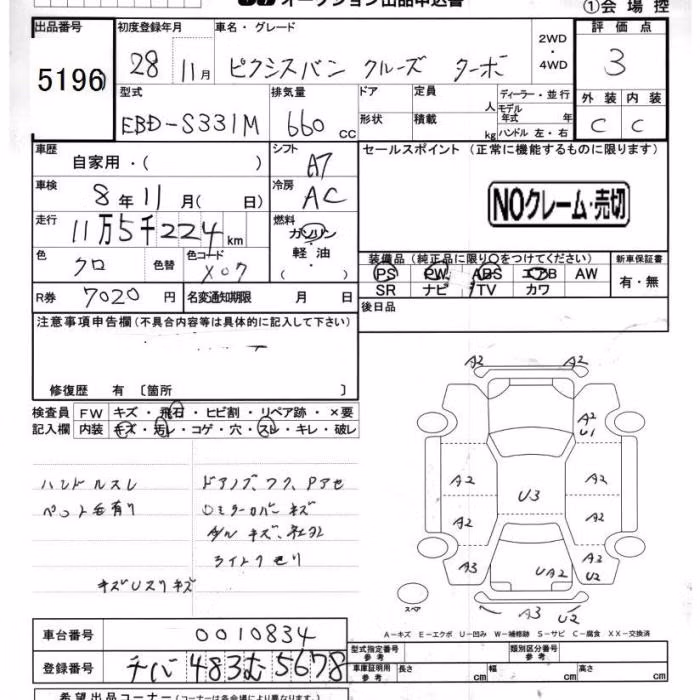 オークション出品申込書
①会場控
出品番号 5196
初度登録年月 28 11月
車名・グレード ピクシスバン クルーズ ターボ
2WD・4WD
評価点 3
型式 EBD-S331M
排気量 660 cc
ドア 形状
定員 人
積載 kg
ディーラー・並行
モデル年式 年
ハンドル 左・右
外装 C 内装 C
車歴 自家用・( )
シフト A7
セールスポイント (正常に機能するものに限ります)
車検 8年11月( 日)
冷房 AC
NOクレーム・売切
走行 11万5千224km
燃料 ガソリン・軽油・( )
色 クロ 色替 色コード X07
装備品 (純正品に限り○をつけてください)
新車保証書
PS PW ABS エアB AW
SR ナビ TV カワ
有・無
R券 7020円
名変通知期限 月 日
後日品
注意事項申告欄 (不具合内容等は具体的に記入して下さい)
修復歴 有 〔箇所 〕
検査員記入欄 FW キズ・飛石・ヒビ割・リペア跡・×要
内装 キズ・汚レ・コゲ・穴・スレ・キレ・破レ
ハンドルスレ
ペット毛有り
ドアノブ、フク、Pアセ
ロミラーカバーキズ
ライトクモリ
キズUスリキズ
A2 A2
A2
U1
A2 A2
U3
A2 A2
A3 UA2 A2
U2
スペア
A3 U2
A-キズ E-エクボ U-凹み W-補修跡 S-サビ C-腐食 XX-交換済
車台番号 0010834
型式指定番号 参考
類別区分番号 参考
登録番号 チバ 483む5678
車庫証明用 参考 長さ cm 幅 cm 高さ cm
希望出品コーナー (コーナーは各会場により異なります。)